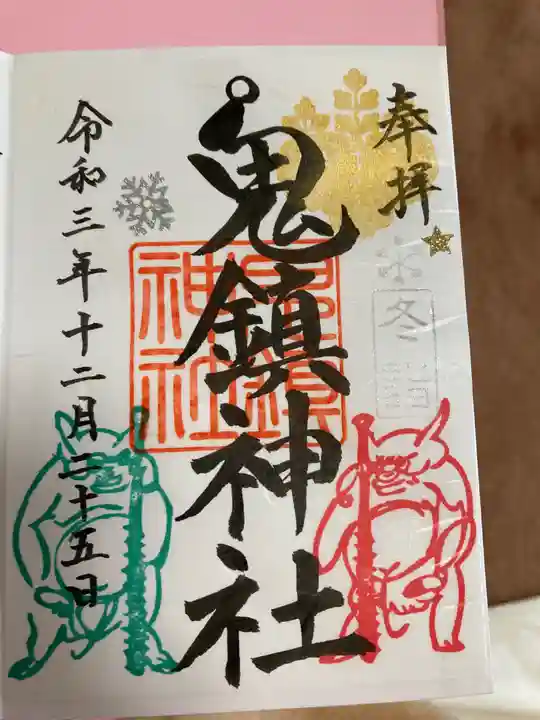 奉拝
冬詣
鬼鎮神社
鬼鎮神社
令和三年十二月二十五日